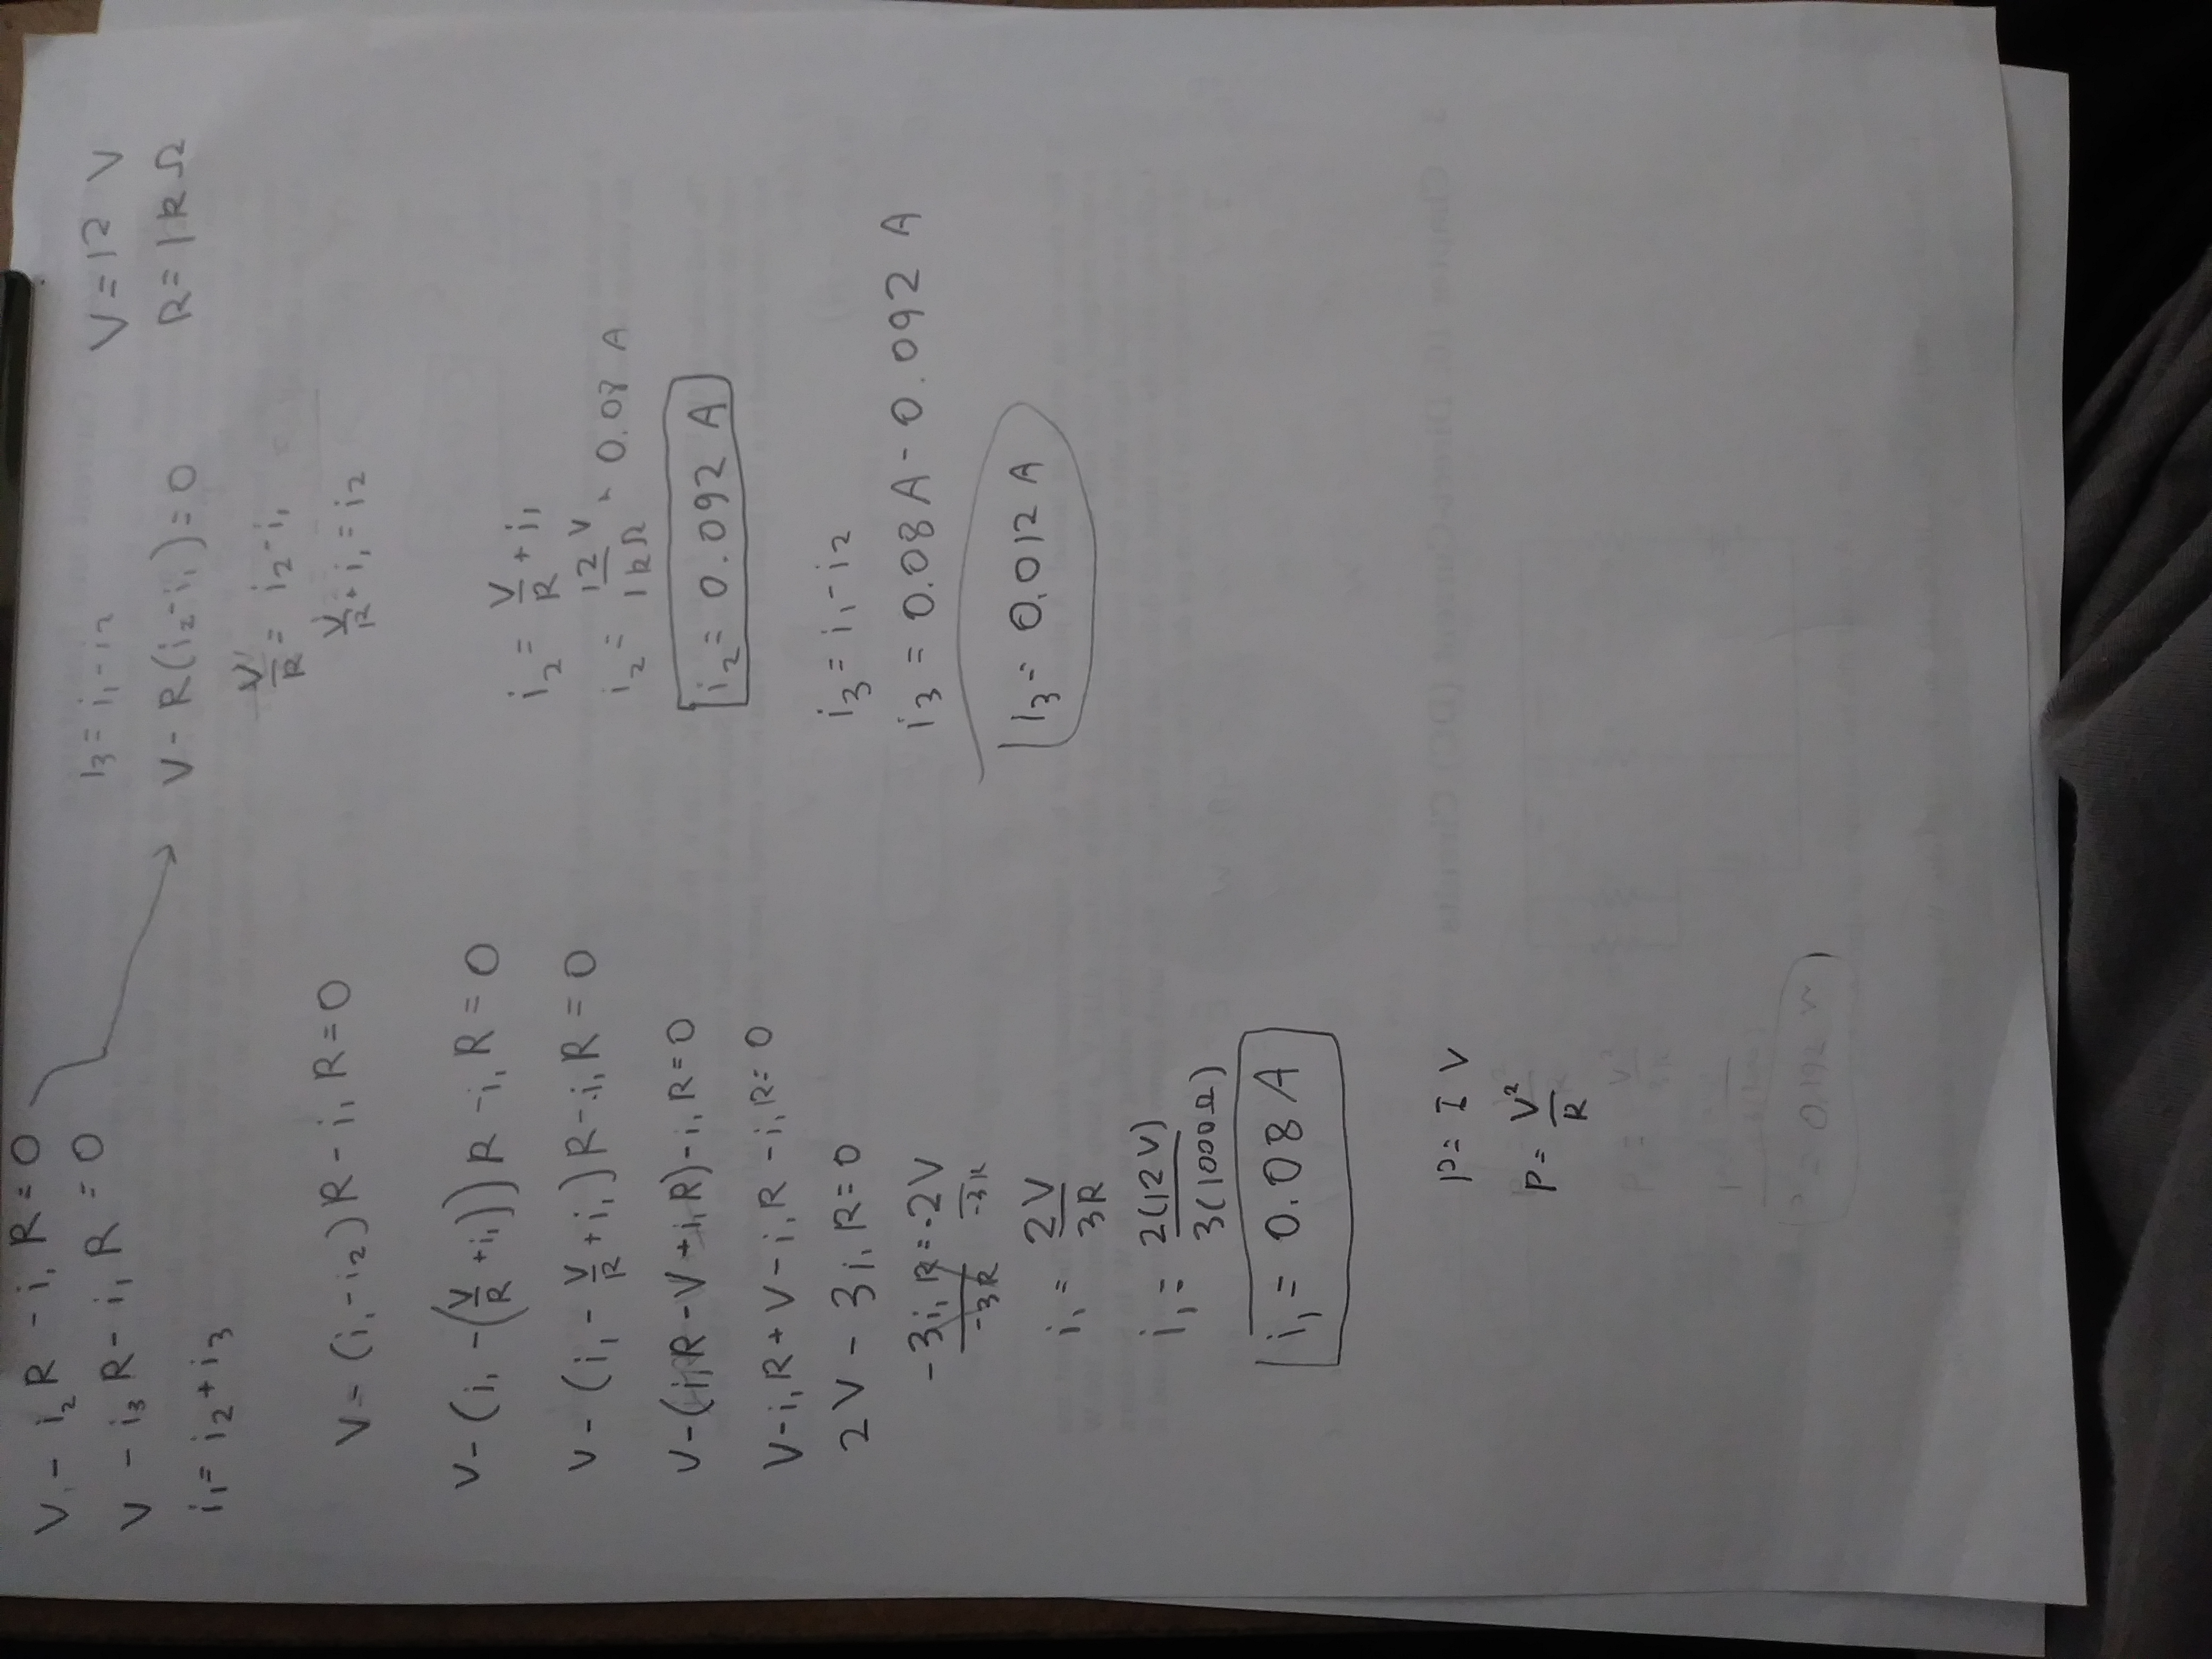 V - i₂R - i₁R = 0
V - i₃R - i₁R = 0
i₁ = i₂ + i₃
V - (i₁ - i₂)R - i₁R = 0
V - (i₁ - (V/R + i₁))R - i₁R = 0
V - (i₁ - V/R + i₁)R - i₁R = 0
V - (i₁R - V + i₁R) - i₁R = 0
V - i₁R + V - i₁R - i₁R = 0
2V - 3i₁R = 0
-3i₁R/-3R = -2V/-3R
i₁ = 2V/3R
i₁ = 2(12V)/3(1000Ω)
i₁ = 0.08 A
P = IV
P = V²/R
I₃ = i₁ - i₂
V - R(i₂ - i₁) = 0
V/R = i₂ - i₁
V/R + i₁ = i₂
V = 12 V
R = 1kΩ
i₂ = V/R + i₁
i₂ = 12V/1kΩ + 0.08 A
i₂ = 0.092 A
i₃ = i₁ - i₂
i₃ = 0.08A - 0.092 A
I₃ = 0.012 A